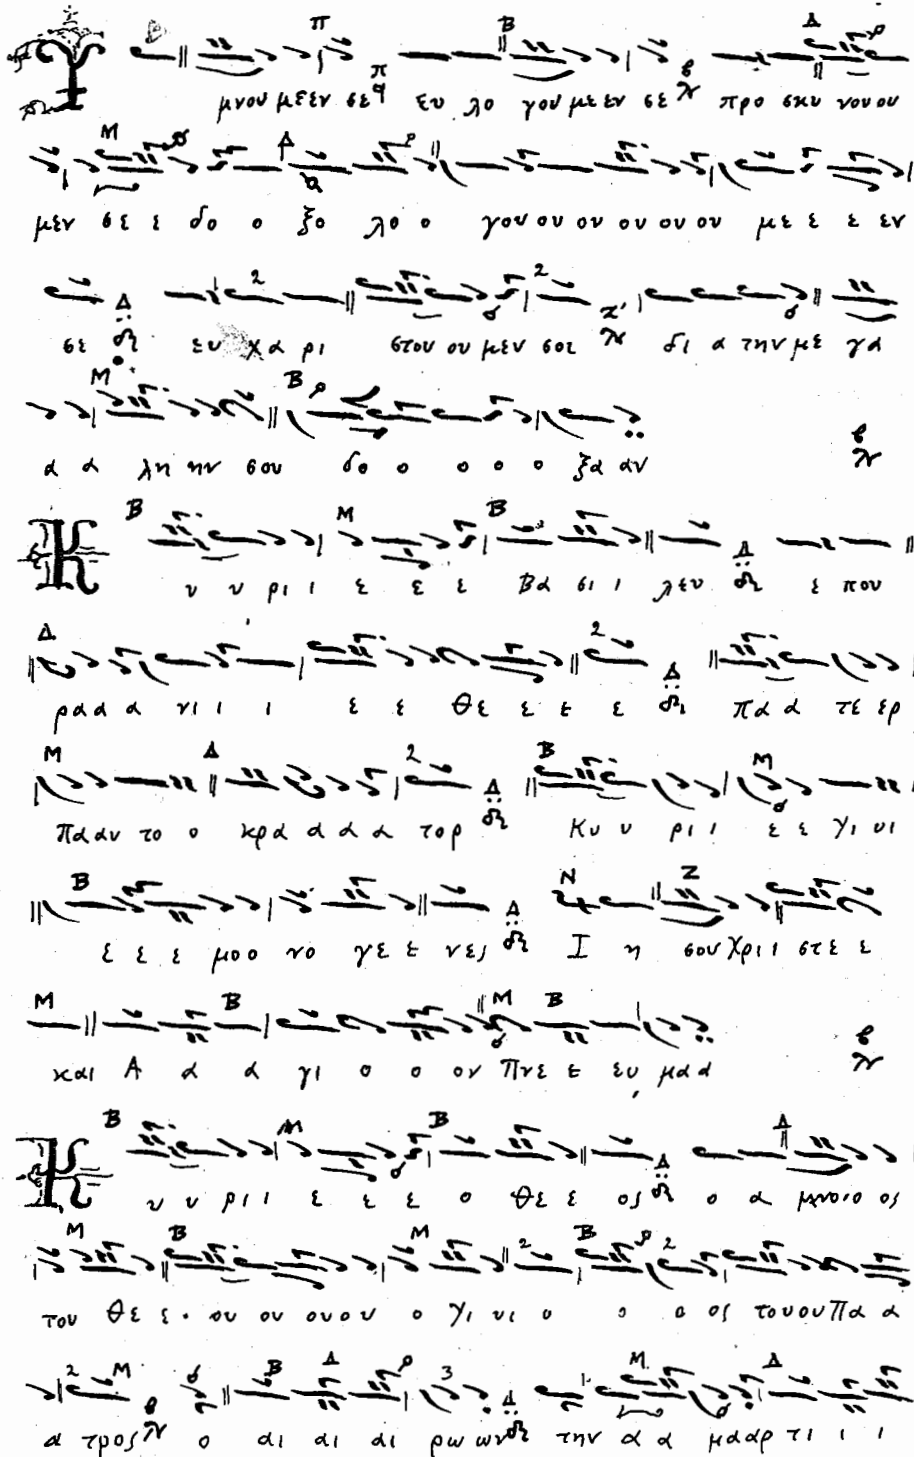 Υ μνου μεεν σε ευ λο γου με εν σε προ σκυ νου ου
μεν σε ε δο ο ξο λο ο γου ου ου ου ου ου με ε ε εν
σε ευ χα ρι στου ου μεν σοι δι α την με γα
α α λη ην σου δο ο ο ο ο ξα αν
Κ υ υ ρι ι ε ε ε Βα σι ι λευ ε που
ρα α α νι ι ι ε ε Θε ε ε ε πα α τε ερ
παν το ο κρα α α α τορ Κυ υ ρι ι ε ε γι υι
ε ε ε μο ο νο γε ε νες Ι η σου Χρι ι στε ε
και Α α α γι ο ο ον Πνε ε ευ μα α
Κ υ υ ρι ι ε ε ε ο Θε ε ος ο α μνο ιο ος
του Θε ε ου ου ου ου ου ο γι υι ο ο ο ος του ου Πα α
α τρος ο αι αι αι ρω ων την α α μα αρ τι ι ι